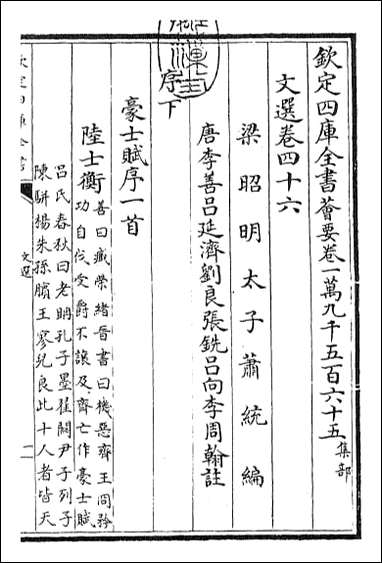 欽定四庫全書薈要卷一萬九千五百六十五 集部
文選卷四十六
梁昭明太子蕭統編
唐李善呂延濟劉良張銑呂向李周翰註
序下
豪士賦序一首
陸士衡 善曰臧榮緒晉書曰機惡齊王冏矜
功自伐受爵不讓及齊亡作豪士賦
呂氏春秋曰老聃孔子墨翟關尹子列子
陳駢楊朱孫臏王寥兒良此十人者皆天
文選
一